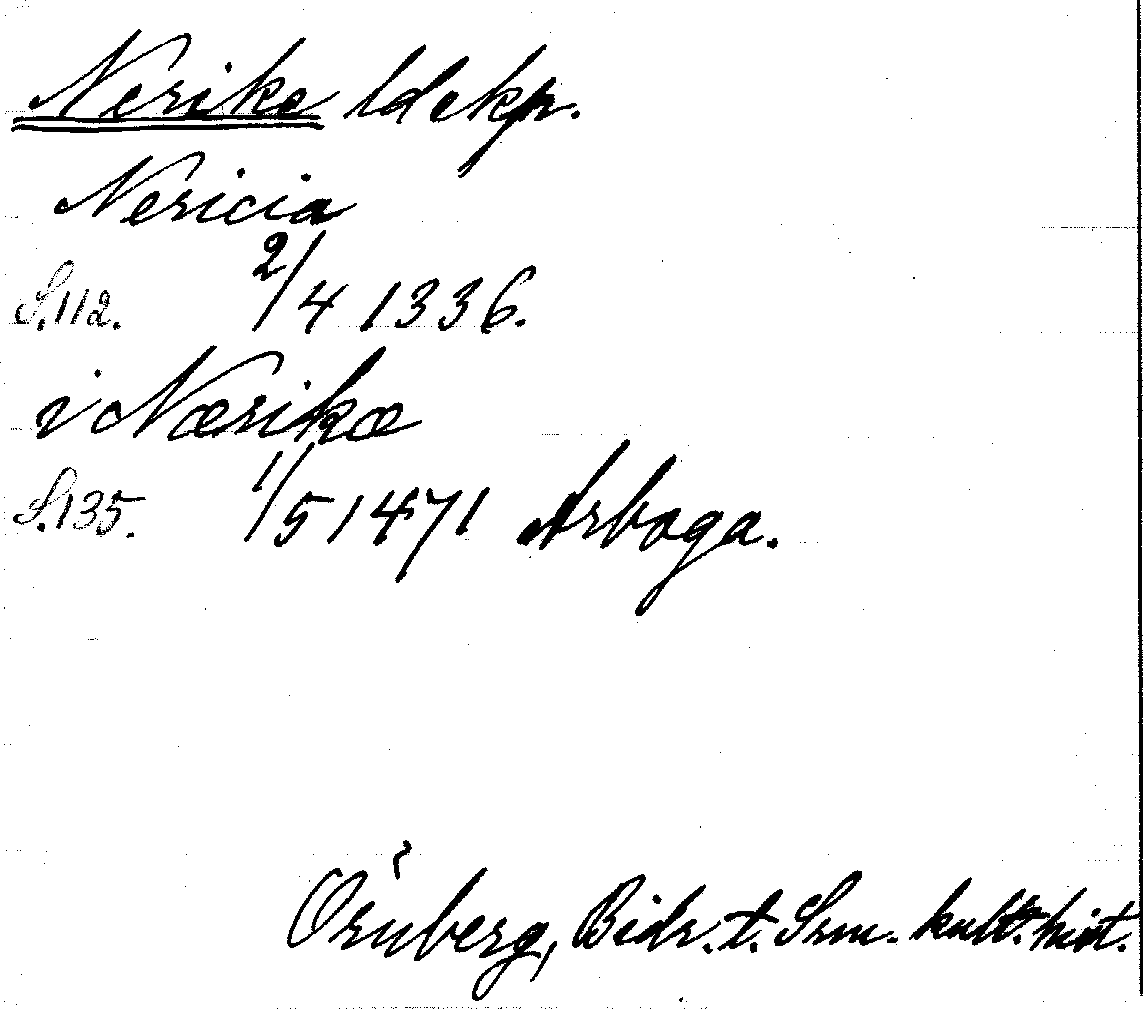 Nerike ldskp.
Nericia
S.112. 2/4 1336.
i Nærikæ
S.135. 1/5 1471 Arboga.
Örnberg, Bidr. t. Srm. kult. hist.